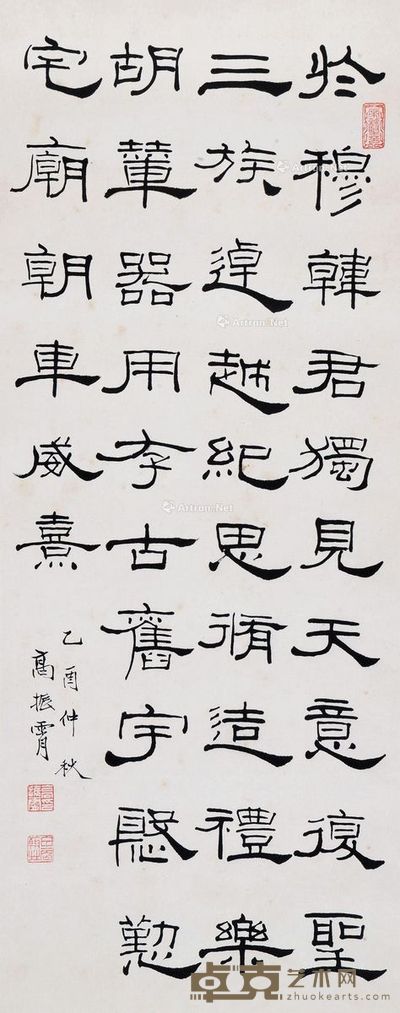 於穆韓君獨見天意復聖
三族逴越紀思脩造禮樂
胡輦器用存古舊宇慇懃
宅廟朝車威熹
乙酉仲秋
高振霄
Artron.Net
Artron.Net
Artron.Net
卓克艺术网
zhuokearts.com